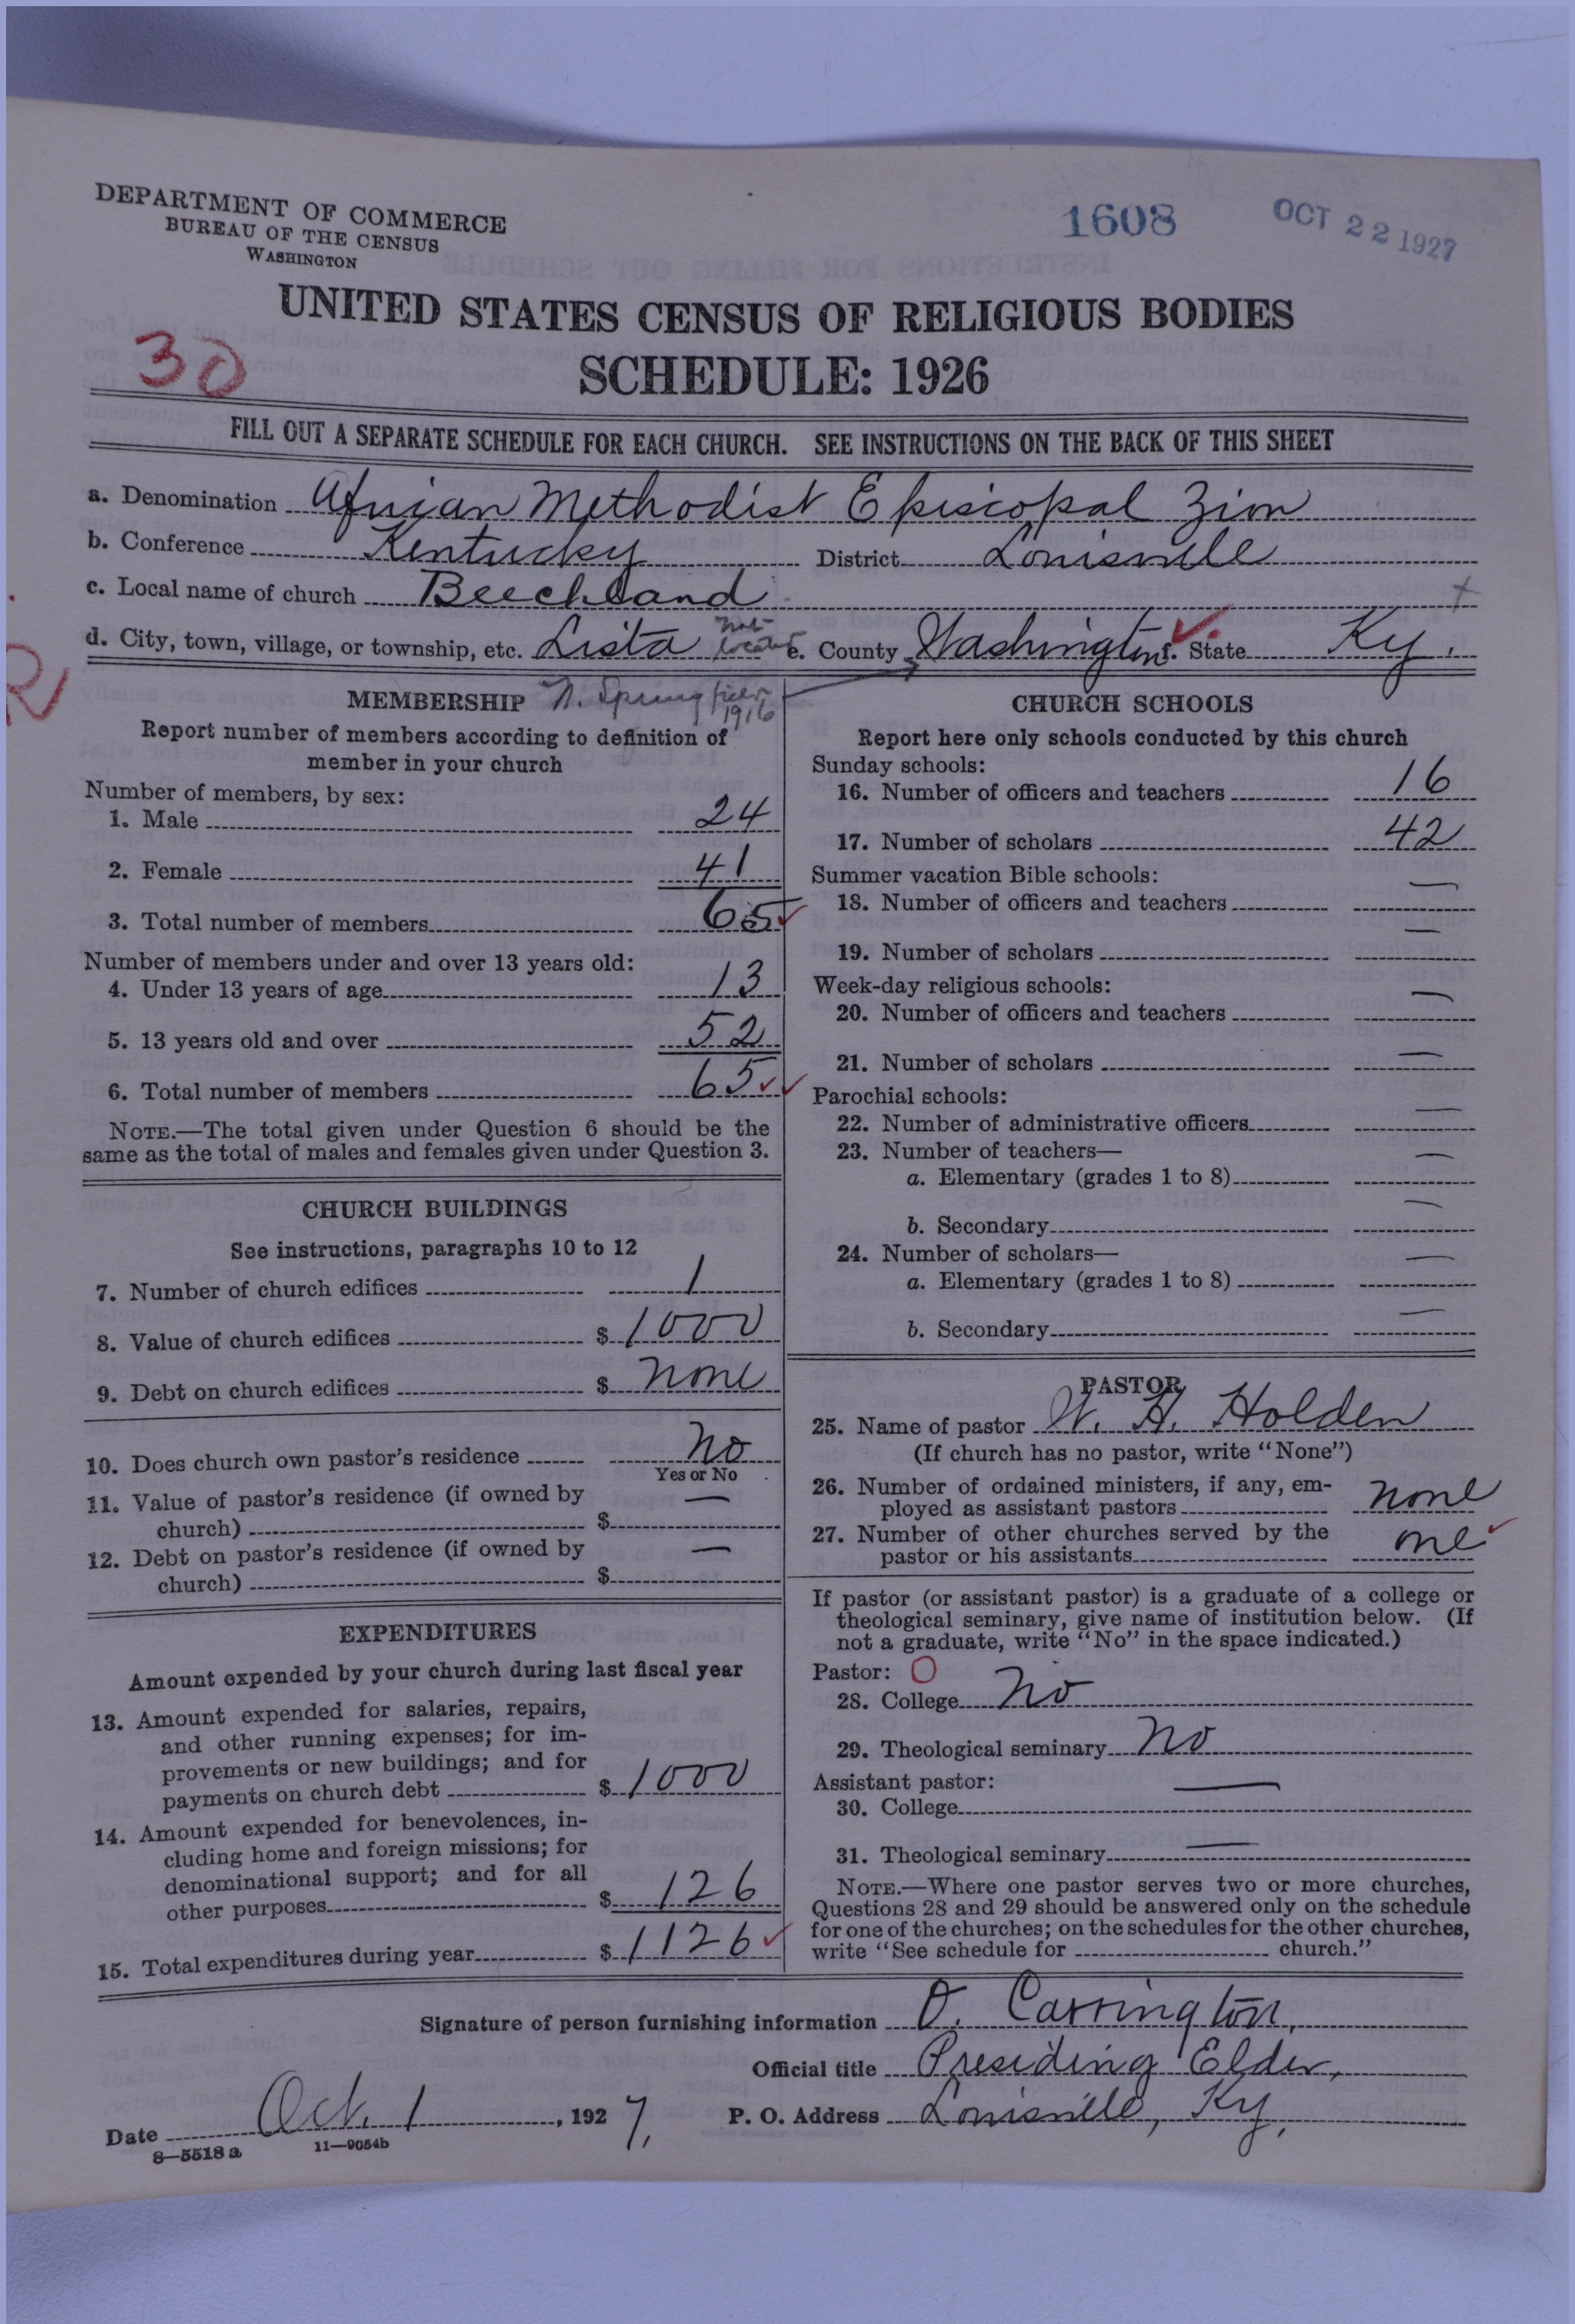 DEPARTMENT OF COMMERCE
BUREAU OF THE CENSUS
WASHINGTON
1608
OCT 22 1927
UNITED STATES CENSUS OF RELIGIOUS BODIES
SCHEDULE: 1926
30
FILL OUT A SEPARATE SCHEDULE FOR EACH CHURCH. SEE INSTRUCTIONS ON THE BACK OF THIS SHEET
a. Denomination African Methodist Episcopal Zion
b. Conference Kentucky District Louisville
c. Local name of church Beechland
d. City, town, village, or township, etc. Lista not located e. County Washington f. State Ky.
MEMBERSHIP N. Springfield 1916
Report number of members according to definition of
member in your church
Number of members, by sex:
1. Male 24
2. Female 41
3. Total number of members 65
Number of members under and over 13 years old:
4. Under 13 years of age 13
5. 13 years old and over 52
6. Total number of members 65
NOTE.—The total given under Question 6 should be the
same as the total of males and females given under Question 3.
CHURCH BUILDINGS
See instructions, paragraphs 10 to 12
7. Number of church edifices 1
8. Value of church edifices $ 1000
9. Debt on church edifices $ none
10. Does church own pastor's residence No
Yes or No
11. Value of pastor's residence (if owned by
church) $ —
12. Debt on pastor's residence (if owned by
church) $ —
EXPENDITURES
Amount expended by your church during last fiscal year
13. Amount expended for salaries, repairs,
and other running expenses; for im-
provements or new buildings; and for
payments on church debt $ 1000
14. Amount expended for benevolences, in-
cluding home and foreign missions; for
denominational support; and for all
other purposes $ 126
15. Total expenditures during year $ 1126
CHURCH SCHOOLS
Report here only schools conducted by this church
Sunday schools:
16. Number of officers and teachers 16
17. Number of scholars 42
Summer vacation Bible schools:
18. Number of officers and teachers —
19. Number of scholars —
Week-day religious schools:
20. Number of officers and teachers —
21. Number of scholars —
Parochial schools:
22. Number of administrative officers —
23. Number of teachers—
a. Elementary (grades 1 to 8) —
b. Secondary —
24. Number of scholars—
a. Elementary (grades 1 to 8) —
b. Secondary —
PASTOR
25. Name of pastor W. H. Holden
(If church has no pastor, write "None")
26. Number of ordained ministers, if any, em-
ployed as assistant pastors none
27. Number of other churches served by the
pastor or his assistants one
If pastor (or assistant pastor) is a graduate of a college or
theological seminary, give name of institution below. (If
not a graduate, write "No" in the space indicated.)
Pastor: O
28. College No
29. Theological seminary No
Assistant pastor:
30. College —
31. Theological seminary —
NOTE.—Where one pastor serves two or more churches,
Questions 28 and 29 should be answered only on the schedule
for one of the churches; on the schedules for the other churches,
write "See schedule for church."
Signature of person furnishing information O. Carrington,
Official title Presiding Elder,
Date Oct. 1, 1927. P. O. Address Louisville, Ky.
8—5518 a 11—9054b